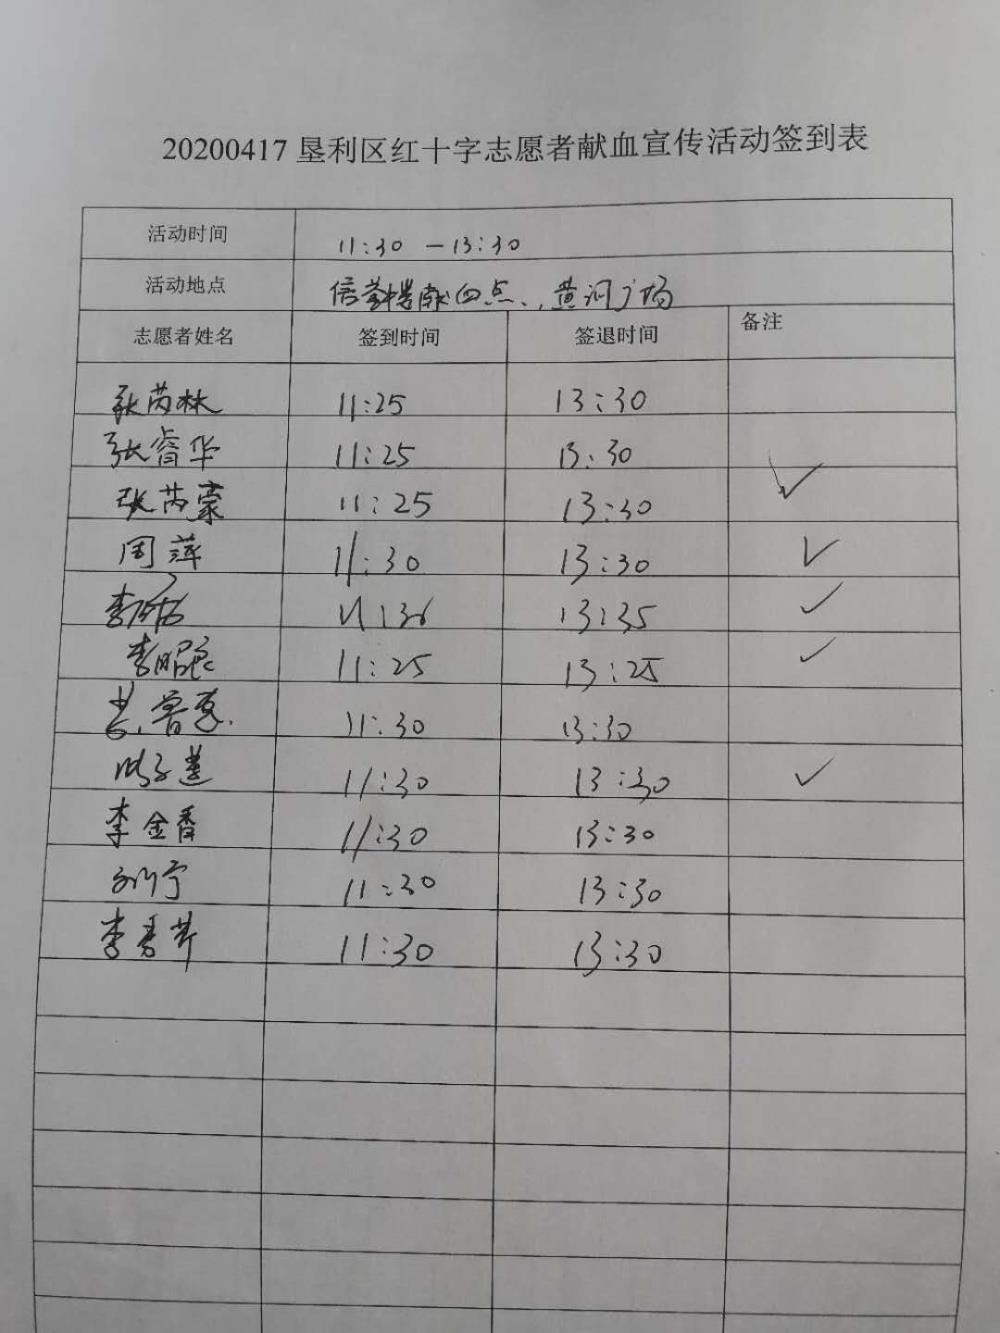 20200417 垦利区红十字志愿者献血宣传活动签到表
活动时间 11:30 — 13:30
活动地点 信誉楼献血点、黄河广场
志愿者姓名 签到时间 签退时间 备注
张芮林 11:25 13:30
张睿华 11:25 13:30
张芮蒙 11:25 13:30 ✓
周萍 11:30 13:30 ✓
李 11:36 13:35 ✓
李昭 11:25 13:25 ✓
11:30 13:30
11:30 13:30 ✓
李金香 11:30 13:30
刘宁 11:30 13:30
李秀芹 11:30 13:30